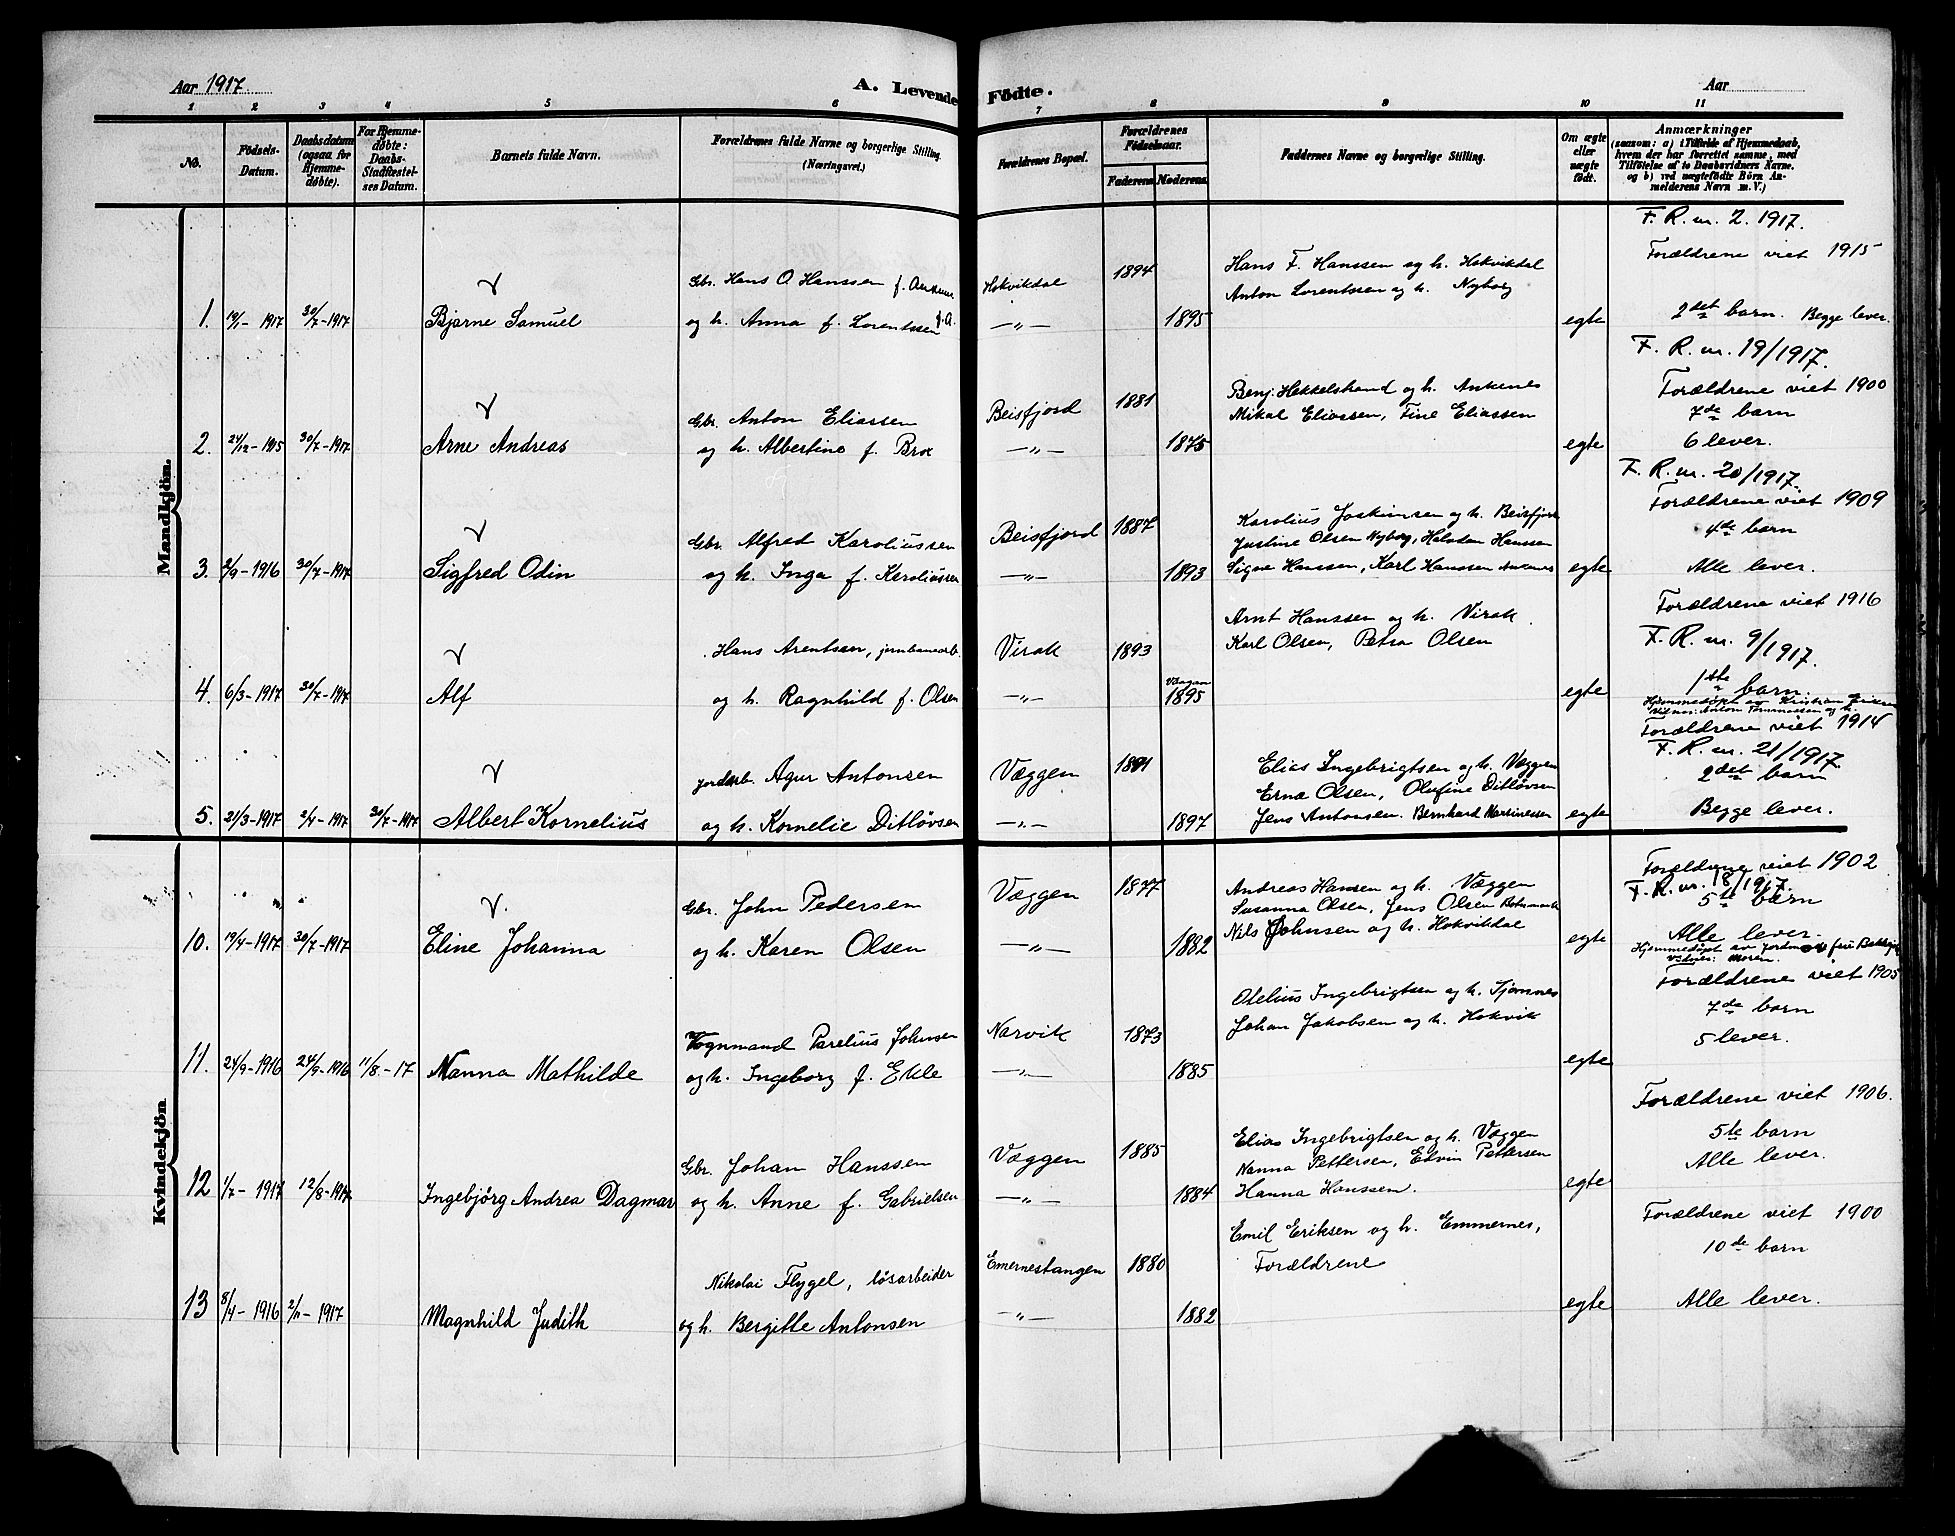 Aar 1917.
A. Levende Fødte.
Aar
1 2 3 4 5 6 7 8 9 10 11
No.
Fødsels-
Datum.
Daabsdatum
(ogsaa for
Hjemme-
døbte).
For Hjemme-
døbte:
Daabs-
Stadfæstel-
ses Datum.
Barnets fulde Navn.
Forældrenes fulde Navne og borgerlige Stilling.
(Næringsvei.)
Forældrenes Bopæl.
Forældrenes
Fødselsaar.
Faderens Moderens
Faddernes Navne og borgerlige Stilling.
Om ægte
eller
uægte
født.
Anmærkninger
(saasom: a) i Tilfælde af Hjemmedaab,
hvem der har forrettet samme, med
Tilføielse af to Daabsvidners Navne.
og b) ved uægtefødte Børn An-
melderens Navn m. V.)
Mandkjön.
F. R. nr. 2. 1917.
Forældrene viet 1915
Gbr. Hans O Hanssen Hokvikdal 1894 Hans F. Hanssen og h. Hokvikdal
Anton Lorentssen og h. Nyborg
1. 19/1 - 1917 30/7 - 1917 Bjarne Samuel og h. Anna f. Lorentssen — " — 1895 egte 2det barn. Begge lever.
F. R. nr. 19/1917.
Gbr. Anton Eliassen Beisfjord 1881 Benj. Hekkelstrand og h. Ankenes Forældrene viet 1900
Mikal Eliassen, Fine Eliassen 7de barn
2. 24/12 - 1915 30/7 - 1917 Arne Andreas og h. Albertine f. Brox — " — 1875 egte 6 lever.
F. R. nr. 20/1917.
Forældrene viet 1909
Gbr. Alfred Karoliussen Beisfjord 1887 Karolius Joakimsen og h. Beisfjord 4de barn
Justine Olsen Nyborg, Halvdan Hanssen
3. 2/9 - 1916 30/7 - 1917 Sigfred Odin og h. Inga f. Karoliussen — " — 1893 Signe Hanssen, Karl Hanssen Ankenes egte Alle lever.
Forældrene viet 1916
Hans Arentsen, jernbanearb. Virak 1893 Arnt Hanssen og h. Virak.
Karl Olsen, Petra Olsen F. R. nr. 9/1917.
4. 6/3 - 1917 30/7 - 1917 Alf og h. Ragnhild f. Olsen — " — Vaagan 1895 egte 1ste barn.
Hjemmedøpt av Kristian
Forældrene viet 1914
F. R. nr. 21/1917.
jordarb. Agur Antonsen Væggen Elias Ingebrigtsen og h. Væggen 2det barn
Erna Olsen, Olufine Ditløvsen
5. 21/3 - 1917 2/4 - 1917 30/7 - 1917 Albert Kornelius og h. Kornelie Ditløvsen — " — 1897 Jens Antonsen. Bernhard Martinessen egte Begge lever.
Kvindekjön
Forældrene viet 1902
F. R. nr. 18/1917.
Gbr. John Pedersen Væggen 1877 Andreas Hansen og h. Væggen 5te barn
Susanna Olsen, Jens Olsen
10. 19/4 - 1917 30/7 - 1917 Eline Johanna og h. Karen Olsen — " — 1882 Nils Johnsen og h. Hokvikdal egte Alle lever.
Hjemmedøpt av jordmor fru
vidner: moren.
Forældrene viet 1905
Otelius Ingebrigtsen og h. Tjømnes 7de barn
Vognmand Parelius Johnsen Narvik 1873 Johan Jakobsen og h. Hokvik 5 lever.
11. 24/9 - 1916 24/9 - 1916 11/8 - 17 Nanna Mathilde og h. Ingeborg f. Elde — " — 1885 egte
Forældrene viet 1906.
Gbr. Johan Hanssen Væggen 1885 Elias Ingebrigtsen og h. Væggen 5te barn
Nanna Pettersen, Edvin Pettersen Alle lever.
12 1/7 - 1917 12/8 - 1917 Ingebjørg Andrea Dagmar og h. Anne f. Gabrielsen — " — 1884 Hanna Hanssen. egte
Forældrene viet 1900
Emil Eriksen og h. Emmernes, 10de barn
Nikolai Flygel, løsarbeider Emernestangen 1880 Forældrene
13 8/4 - 1916 2/11 - 1917 Magnhild Judith og h. Bergitte Antonsen — " — 1882 egte Alle lever.